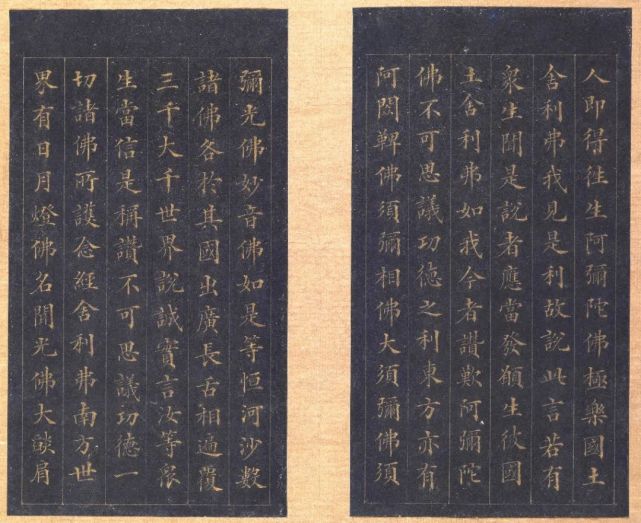 人即得徃生阿彌陀佛極樂國土
舍利弗我見是利故說此言若有
衆生聞是說者應當發願生彼國
土舍利弗如我今者讚歎阿彌陀
佛不可思議功德之利東方亦有
阿閦鞞佛須彌相佛大須彌佛須
彌光佛妙音佛如是等恒河沙數
諸佛各於其國出廣長舌相遍覆
三千大千世界說誠實言汝等衆
生當信是稱讚不可思議功德一
切諸佛所護念經舍利弗南方世
界有日月燈佛名聞光佛大燄肩